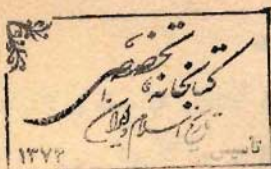 کتابخانه تخصصی
تاریخ اسلام و ایران
تأسیس ۱۳۷۳